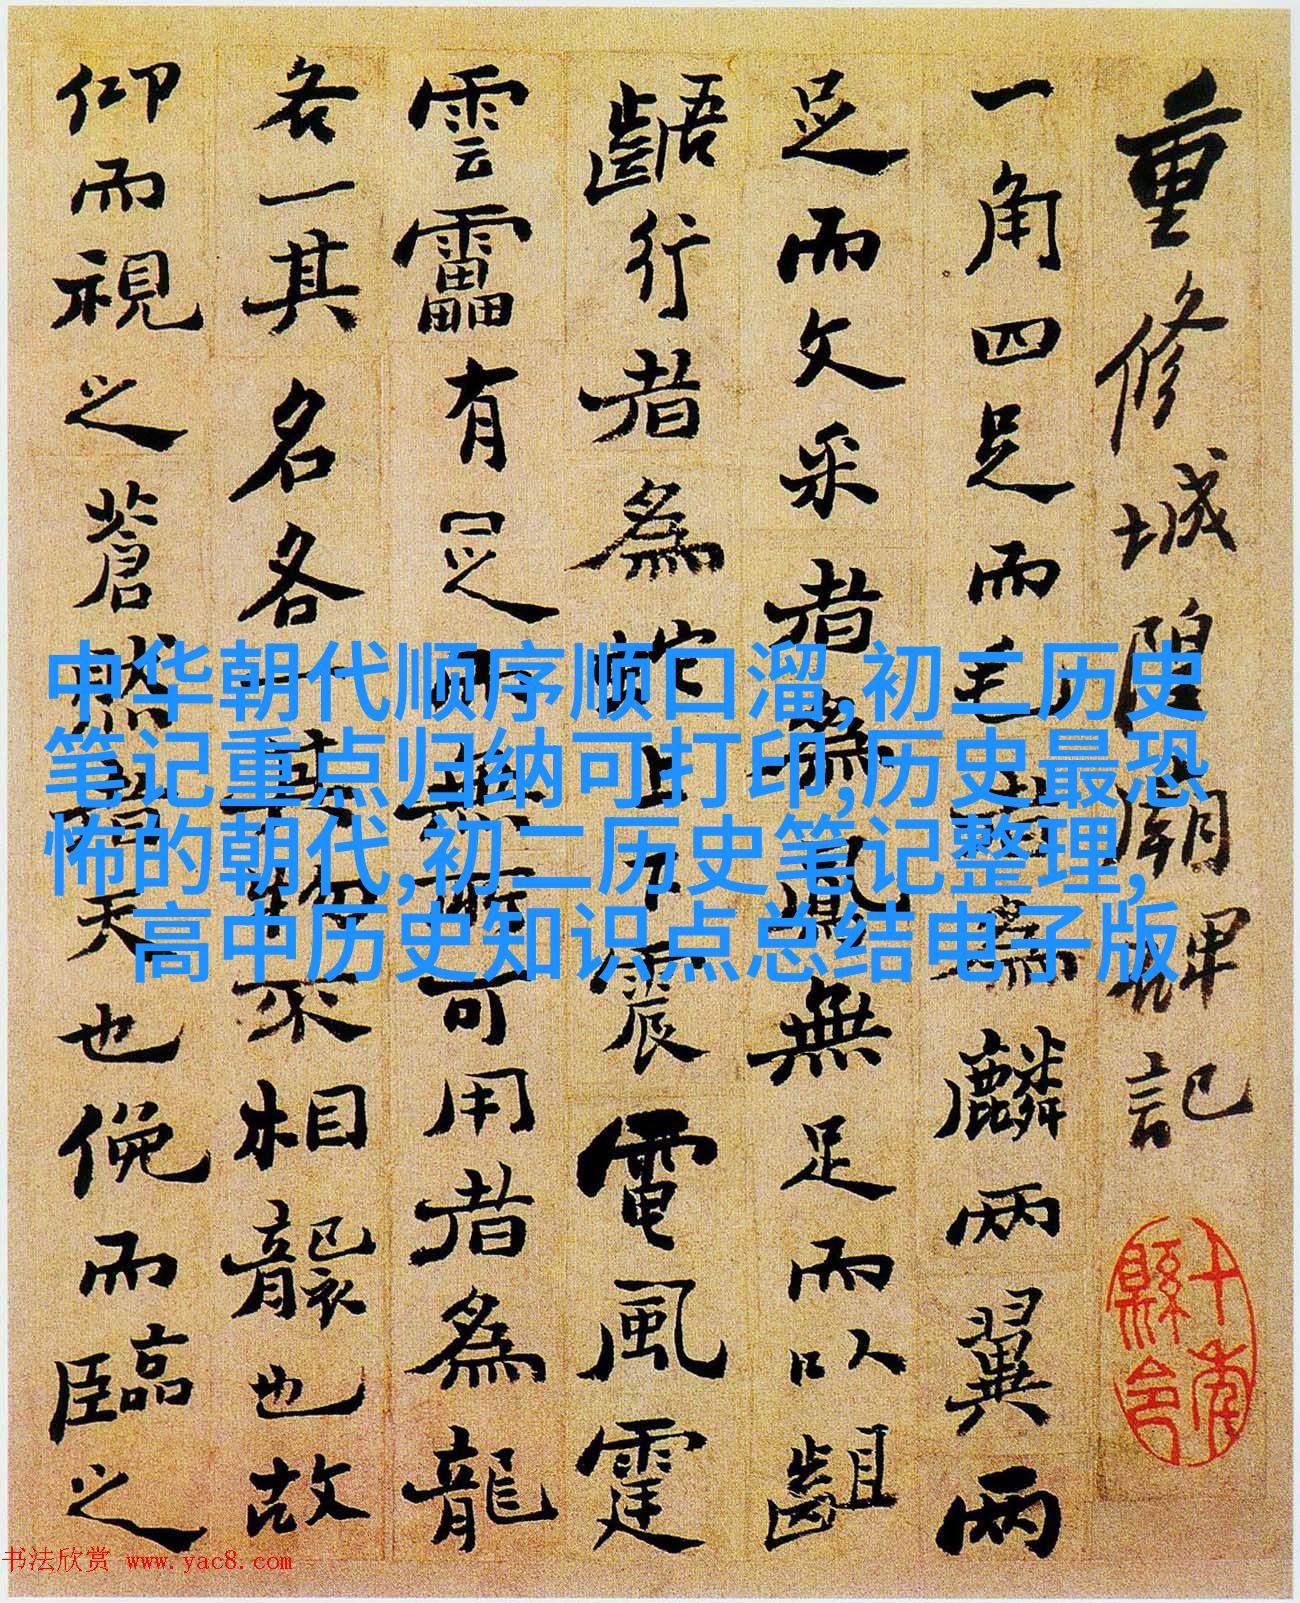 重修城隍廟碑記
一角四足而毛者為麟兩翼兩
足而文采者為鳳無足而以齟
齬行者為蛇上下震電風霆
雲雷有足之而無所可用者為龍
各一其名各一其物不相襲也故
仰而視之蒼然皓天也俛而臨之
十南縣令
中华朝代顺序顺口溜,初二历史
笔记重点归纳可打印,历史最恐
怖的朝代,初二历史笔记整理,
高中历史知识点总结电子版
书法欣赏 www.yac8.com